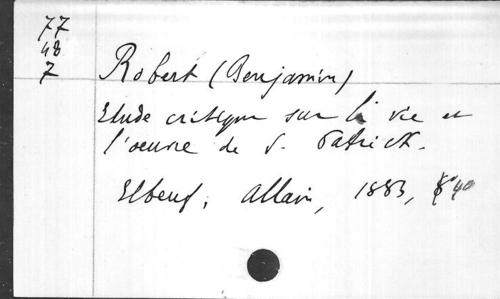 77
48
7
Robert (Benjamin)
Etude critique sur la vie et
l'oeuvre de S. Patrick.
Elbeuf, Allain, 1883, 4°